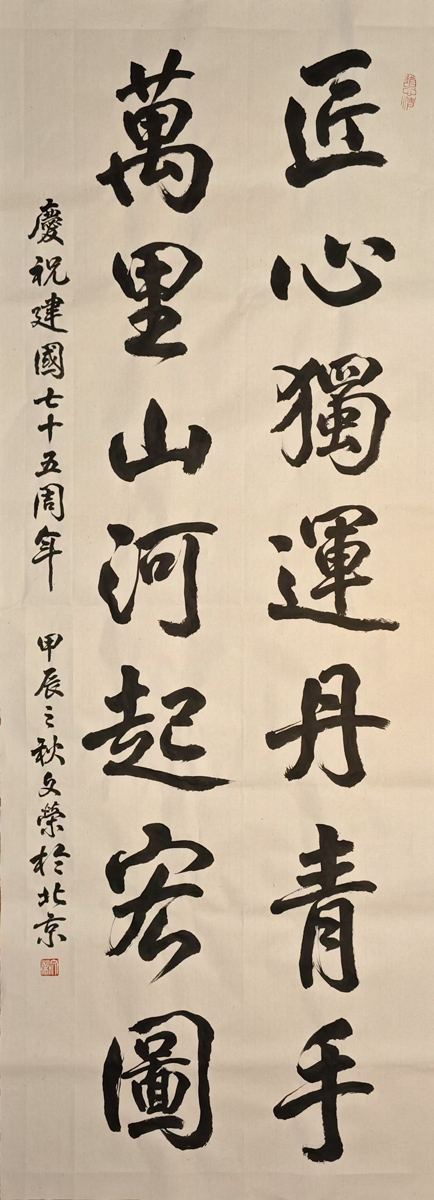 匠心獨運丹青手
萬里山河起宏圖
慶祝建國七十五周年 甲辰之秋文榮於北京